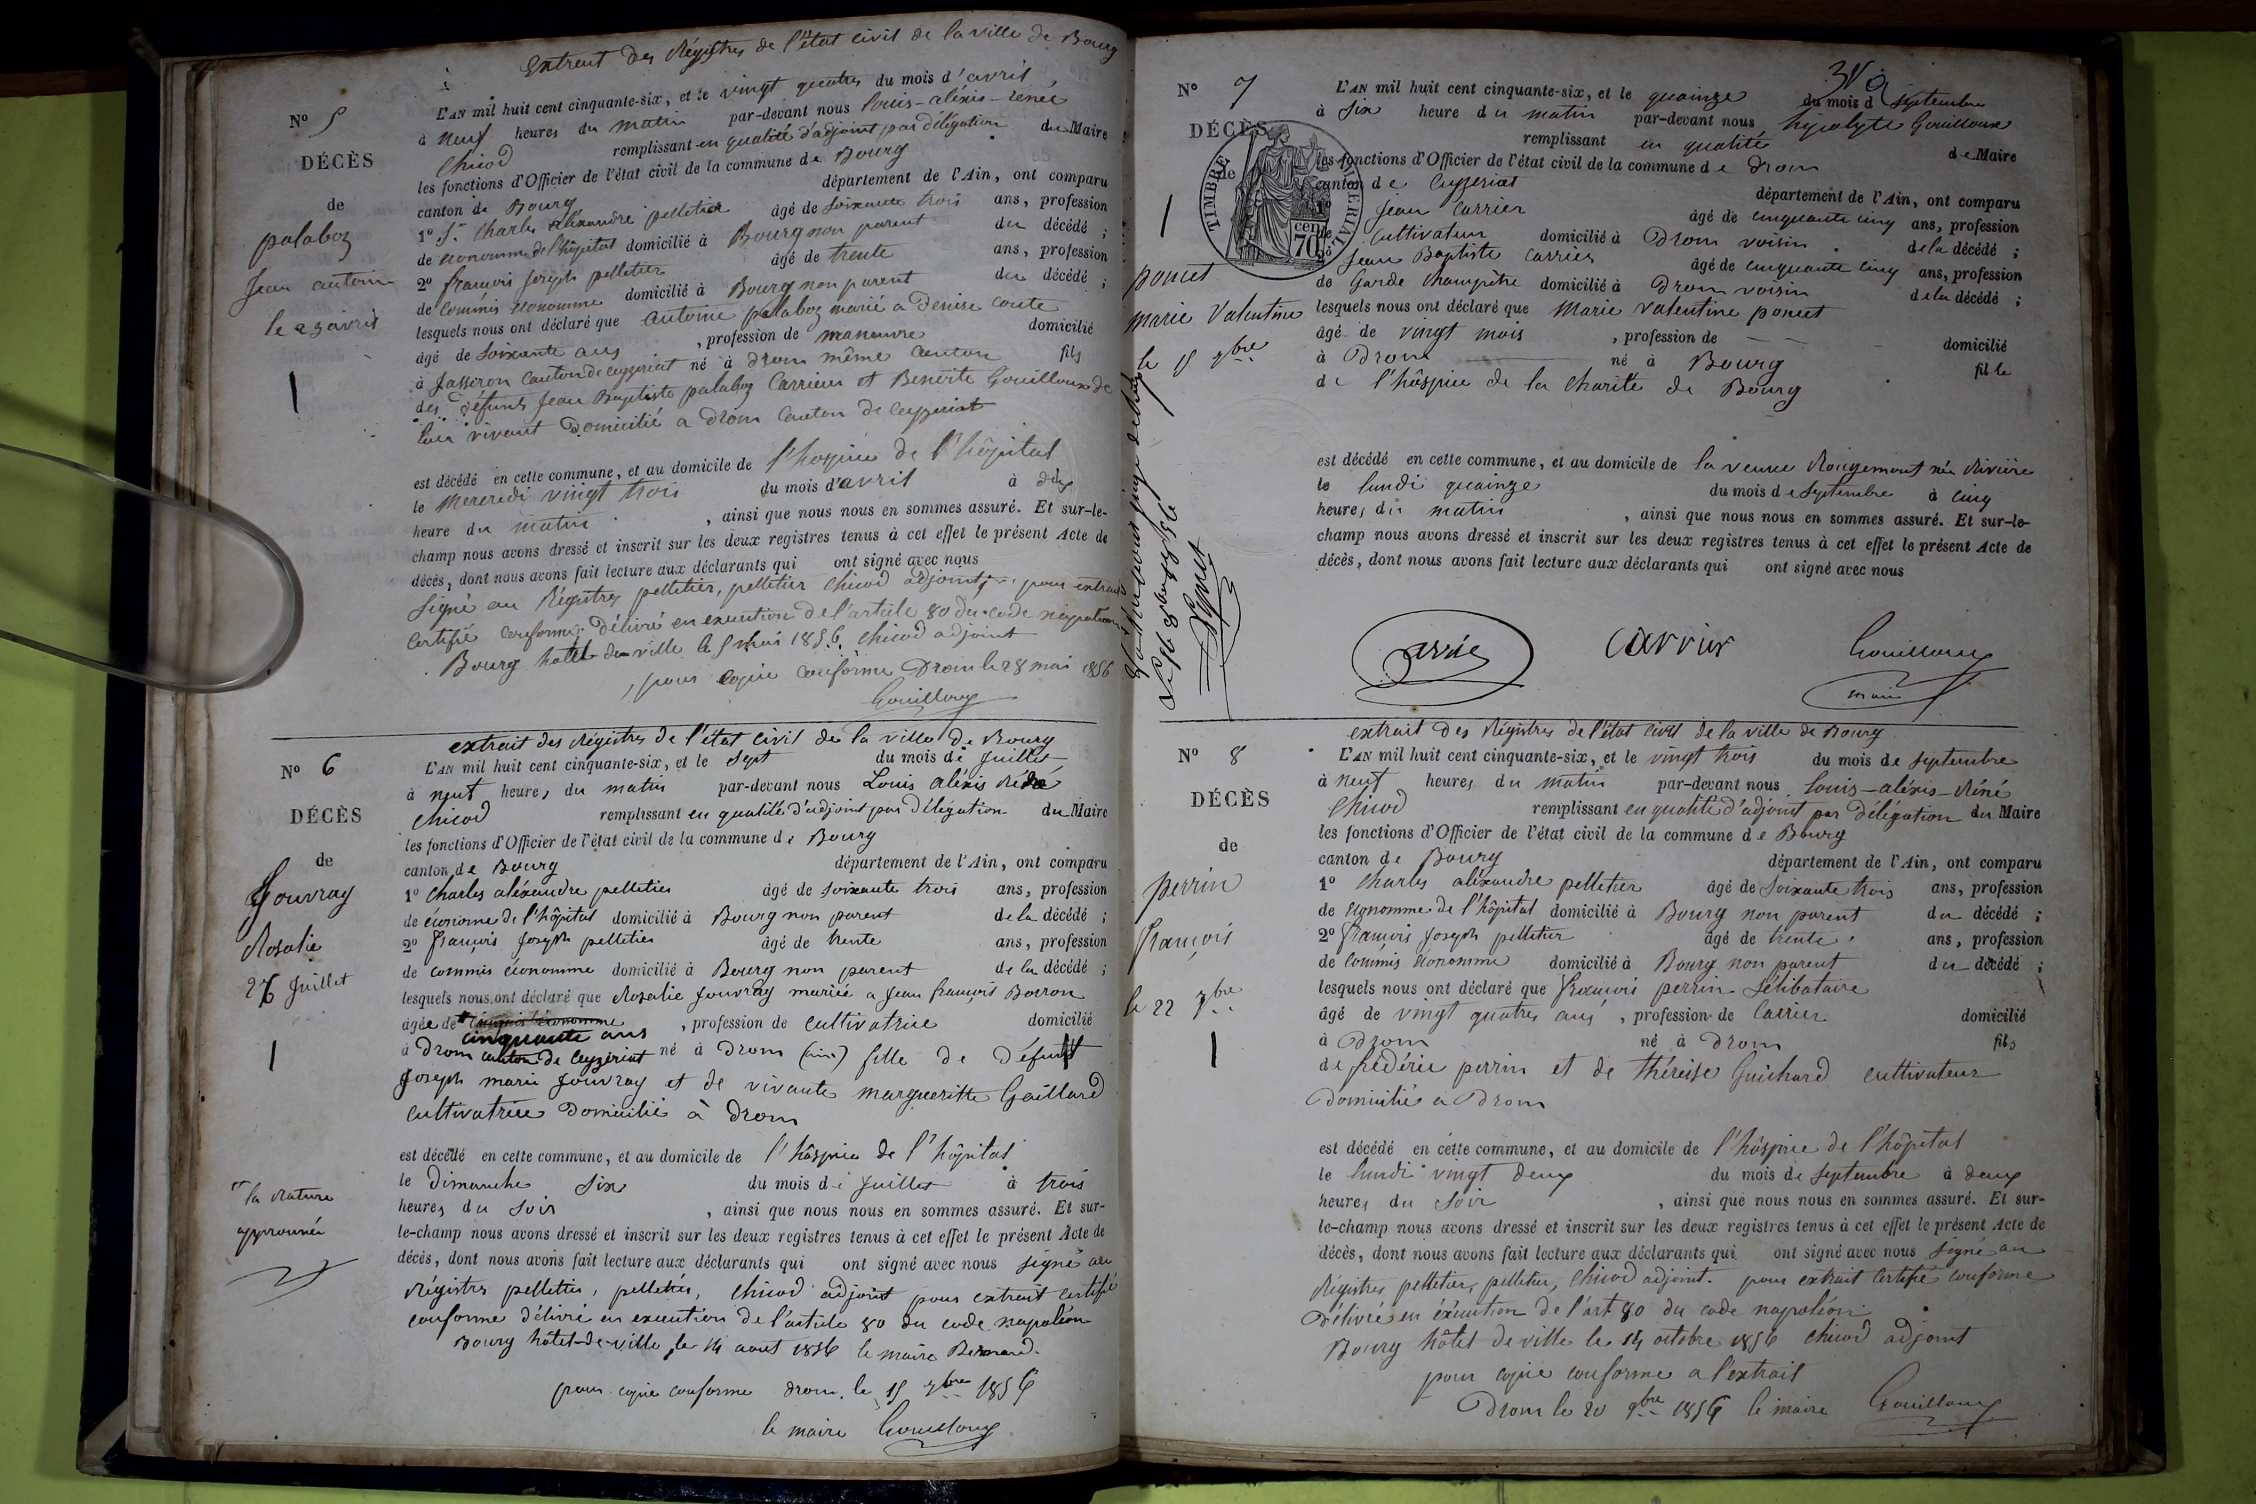 Extrait des Régistres de l'état civil de la ville de Bourg
N° 5
DÉCÈS
de
palaboz
Jean antoine
le 23 avril
L'AN mil huit cent cinquante-six, et le vingt quatres du mois d'avril
à neuf heures du matin par-devant nous Louis-aléxis-renée
Chicod remplissant en qualité d'adjoint par délégation du Maire
les fonctions d'Officier de l'état civil de la commune de Bourg
canton de Bourg département de l'Ain, ont comparu
1° Sr Charles aléxandre pelletier âgé de soixante trois ans, profession
de économe de l'hôpital domicilié à Bourg non parent du décédé ;
2° françois Joseph pelletier âgé de trente ans, profession
de commis économme domicilié à Bourg non parent du décédé ;
lesquels nous ont déclaré que antoine palaboz marié a Denise conte
âgé de soixante ans , profession de manœuvre domicilié
à Jasseron canton de ceyzeriat né à Drom même canton fils
des défunts Jean Baptiste palaboz Carrieur et Benoite Gouilloux de
leur vivant Domicilié a Drom canton de ceyzeriat
est décédé en cette commune, et au domicile de l'hospice de l'hôpital
le Mercredi vingt trois du mois d'avril à dix
heure du matin , ainsi que nous nous en sommes assuré. Et sur-le-
champ nous avons dressé et inscrit sur les deux registres tenus à cet effet le présent Acte de
décès, dont nous avons fait lecture aux déclarants qui ont signé avec nous
signé au Régistres pelletier, pelletier Chicod adjoint, pour extrait
certifié conforme Délivré en execution de l'article 80 du code napoléon
Bourg hôtel de ville le 5 mai 1856. Chicod adjoint
pour copie conforme Drom le 28 mai 1856
Gouilloux
N° 6
DÉCÈS
de
Jouvray
Rosalie
6 Juillet
la Rature
approuvée
extrait des Régistres de l'état civil de la ville de Bourg
L'AN mil huit cent cinquante-six, et le sept du mois de Juillet
à neuf heures du matin par-devant nous Louis aléxis Réné
Chicod remplissant en qualité d'adjoint par délégation du Maire
les fonctions d'Officier de l'état civil de la commune de Bourg
canton de Bourg département de l'Ain, ont comparu
1° Charles aléxandre pelletier âgé de soixante trois ans, profession
de économe de l'hôpital domicilié à Bourg non parent de la décédé ;
2° françois Joseph pelletier âgé de trente ans, profession
de commis économme domicilié à Bourg non parent de la décédé ;
lesquels nous ont déclaré que Rosalie Jouvray mariée a Jean françois Borron
âgée de commis économme , profession de cultivatrice domicilié
cinquante ans
à Drom canton de Ceyzériat né à Drom (ain) fille de Défunt
Joseph marie Jouvray et de vivante margueritte Gaillard
cultivatrice Domicilié à Drom
est décédé en cette commune, et au domicile de l'hôspice de l'hôpital
le Dimanche six du mois de Juillet à trois
heures du soir , ainsi que nous nous en sommes assuré. Et sur-
le-champ nous avons dressé et inscrit sur les deux registres tenus à cet effet le présent Acte de
décès, dont nous avons fait lecture aux déclarants qui ont signé avec nous signé au
Régistres pelletier, pelletier, Chicod adjoint pour extrait certifié
conforme délivré en execution de l'article 80 du code napoléon
Bourg hôtel-de-ville le 14 aout 1856 le maire Bernard.
pour copie conforme Drom le 15 7bre 1856
le maire Gouilloux
N° 7
DÉCÈS
de
poncet
marie Valentine
le 15 7bre
TIMBRE IMPÉRIAL
70 cent
L'AN mil huit cent cinquante-six, et le quainze du mois de septembre
à six heure du matin par-devant nous hipolyte Gouilloux
remplissant en qualité de Maire
les fonctions d'Officier de l'état civil de la commune de Drom
canton de Ceyzeriat département de l'Ain, ont comparu
1° Jean Carrier âgé de cinquante cinq ans, profession
de Cultivateur domicilié à Drom voisin de la décédé ;
2° Jean Baptiste Carrier âgé de cinquante cinq ans, profession
de Garde champêtre domicilié à Drom voisin de la décédé ;
lesquels nous ont déclaré que Marie Valentine poncet
âgé de vingt mois , profession de domicilié
à Drom né à Bourg fille
de l'hôspice de la charité de Bourg
est décédé en cette commune, et au domicile de la veuve Rougemont née Rivière
le lundi quainze du mois de Septembre à cinq
heures du matin , ainsi que nous nous en sommes assuré. Et sur-le-
champ nous avons dressé et inscrit sur les deux registres tenus à cet effet le présent Acte de
décès, dont nous avons fait lecture aux déclarants qui ont signé avec nous
carrier
Gouilloux
maire
N° 8
DÉCÈS
de
perrin
françois
le 22 7bre
extrait des Régistres de l'état civil de la ville de Bourg
L'AN mil huit cent cinquante-six, et le vingt trois du mois de septembre
à neuf heures du matin par-devant nous Louis-aléxis-Réné
Chicod remplissant en qualité d'adjoint par délégation du Maire
les fonctions d'Officier de l'état civil de la commune de Bourg
canton de Bourg département de l'Ain, ont comparu
1° Charles aléxandre pelletier âgé de soixante trois ans, profession
de économme de l'hôpital domicilié à Bourg non parent du décédé ;
2° françois Joseph pelletier âgé de trente ans, profession
de commis économme domicilié à Bourg non parent du décédé ;
lesquels nous ont déclaré que françois perrin Sélibataire
âgé de vingt quatres ans , profession de Carrier domicilié
à Drom né à Drom fils
de frédéric perrin et de théreise Guichard cultivateur
Domicilié a Drom
est décédé en cette commune, et au domicile de l'hôspice de l'hôpital
le lundi vingt deux du mois de Septembre à deux
heures du soir , ainsi que nous nous en sommes assuré. Et sur-
le-champ nous avons dressé et inscrit sur les deux registres tenus à cet effet le présent Acte de
décès, dont nous avons fait lecture aux déclarants qui ont signé avec nous signé au
Régistres pelletier, pelletier, Chicod adjoint. pour extrait certifié conforme
Délivré en éxécution de l'art 80 du code napoléon
Bourg hôtel de ville le 14 octobre 1856 Chicod adjoint
pour copie conforme a l'extrait
Drom le 20 9bre 1856 le maire Gouilloux